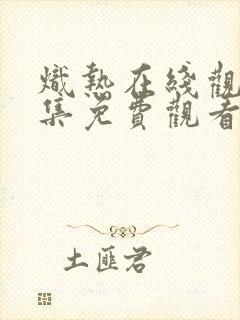 熾熱在綫觀
集免費觀看
土匪君